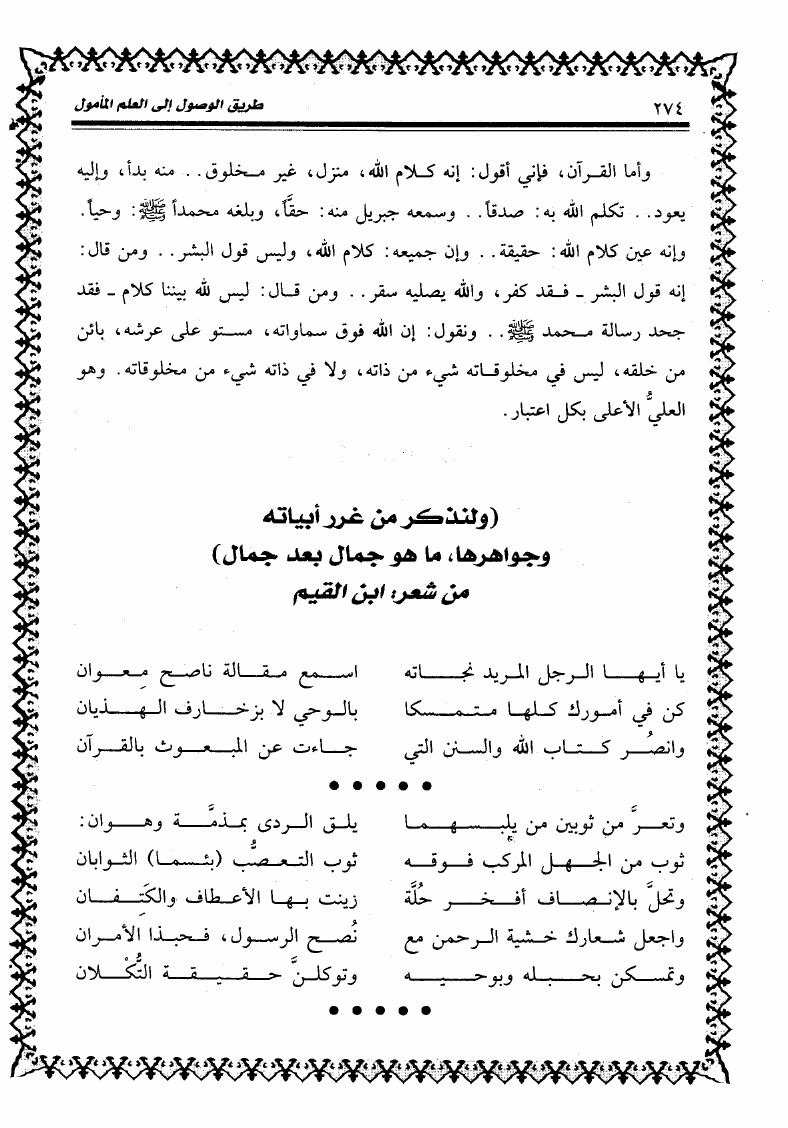 ٢٧٤ طريق الوصول إلى العلم المأمول
وأما القرآن، فإني أقول: إنه كلام الله، منزل، غير مخلوق.. منه بدأ، وإليه
يعود.. تكلم الله به: صدقاً.. وسمعه جبريل منه: حقًّا، وبلغه محمداً ﷺ: وحياً.
وإنه عين كلام الله: حقيقة.. وإن جميعه: كلام الله، وليس قول البشر.. ومن قال:
إنه قول البشر ـ فقد كفر، والله يصليه سقر.. ومن قال: ليس لله بيننا كلام ـ فقد
جحد رسالة محمد ﷺ.. ونقول: إن الله فوق سماواته، مستو على عرشه، بائن
من خلقه، ليس في مخلوقاته شيء من ذاته، ولا في ذاته شيء من مخلوقاته. وهو
العليُّ الأعلى بكل اعتبار.
(ولنذكر من غرر أبياته
وجواهرها، ما هو جمال بعد جمال)
من شعر: ابن القيم
يا أيها الرجل المريد نجاته اسمع مقالة ناصح مِعوان
كن في أمورك كلها متمسكا بالوحي لا بزخارف الهذيان
وانصُر كتاب الله والسنن التي جاءت عن المبعوث بالقرآن
• • • • •
وتعرَّ من ثوبين من يلبسهما يلق الردى بمذمَّة وهوان:
ثوب من الجهل المركب فوقه ثوب التعصُّب (بئسما) الثوابان
وتحلَّ بالإنصاف أفخر حُلَّة زينت بها الأعطاف والكَتِفان
واجعل شعارك خشية الرحمن مع نُصح الرسول، فحبذا الأمران
وتمسكن بحبله وبوحيه وتوكلنَّ حقيقة التُّكْلان
• • • • •